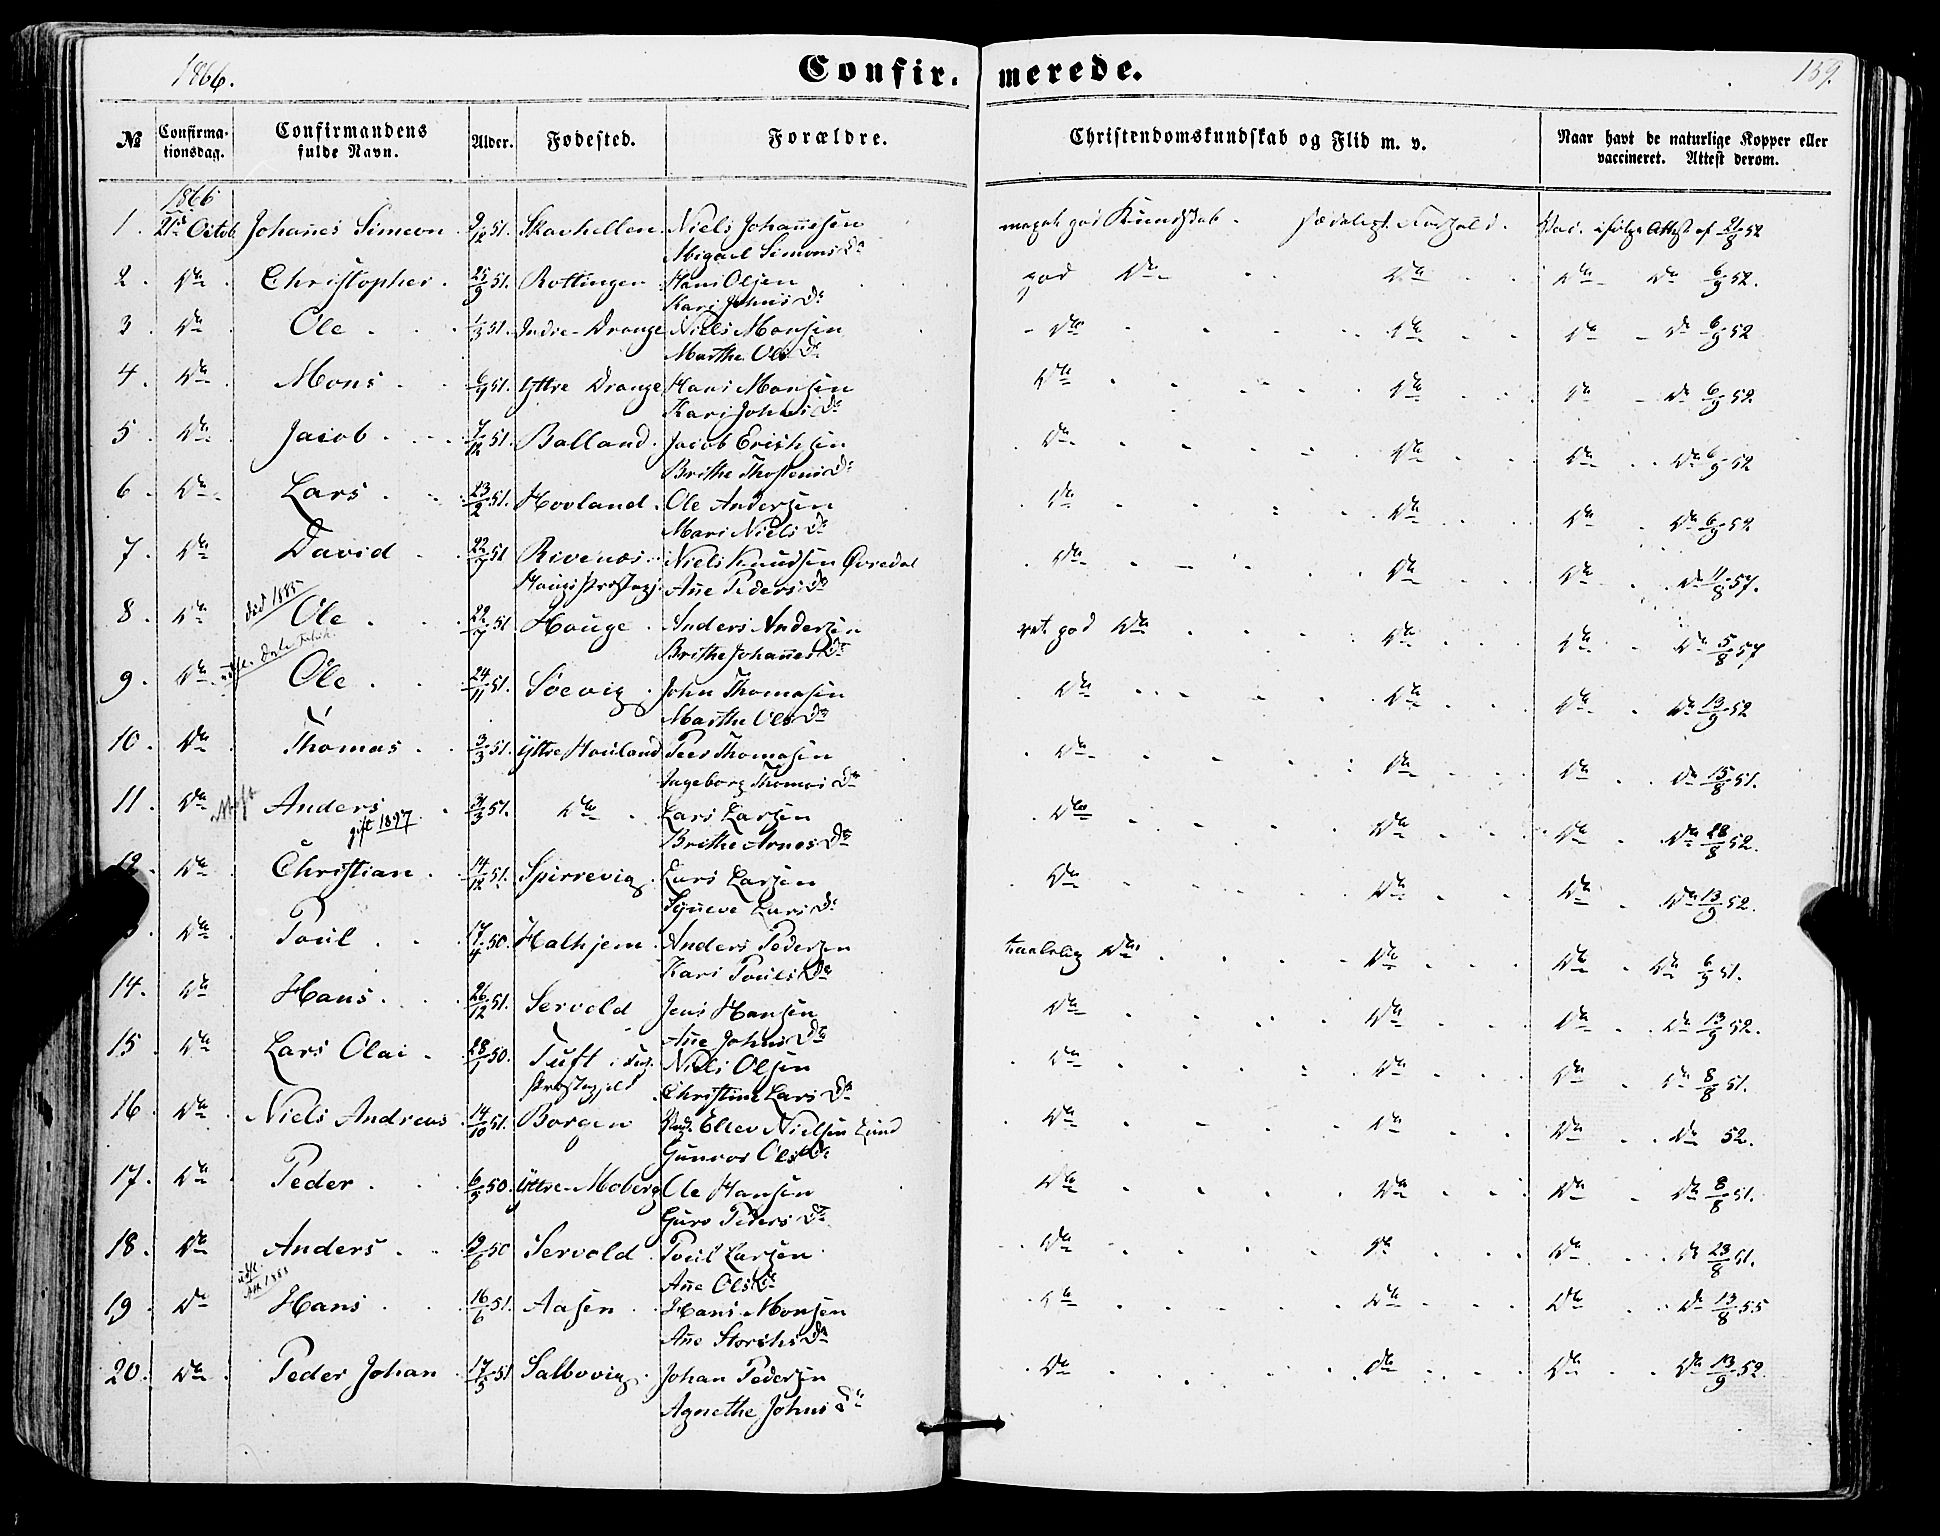 1866. Confir- merede. 159.
№ Confirma-tionsdag. Confirmandens fulde Navn. Alder. Fødested. Forældre. Christendomskundskab og Flid m. v. Naar havt de naturlige Kopper eller vaccineret. Attest derom.
1866
1. 21de Octob. Johan̄es Simeon 9/12 51. Skavhellen Niels Johan̄esen meget god Kundskab. sædeligt Forhold. Vac. ifølge Attest af 21/8 52
Abigael Simons Dr
2. Do Christopher. 25/9 51. Rottingen Hans Olsen god Do Do Do Do 6/9 52.
Kari Johns Dr
3. Do Ole 1/3 51. Indre-Drange Niels Monsen Do Do Do Do 6/9 52
Marthe Ols Dr
4. Do Mons 6/9 51. Yttre Drange Hans Monsen Do Do Do Do 6/9 52
Kari Johns Dr
5. Do Jacob 7/12 51. Balland. Jacob Erichsen Do Do Do Do 6/9 52
Brithe Thostens Dr
6. Do Lars 23/2 51. Hovland. Ole Andersen Do Do Do Do 6/9 52
Mari Niels Dr
7. Do David 22/7 51 Rivenæs Niels Knudsen Øvredal Do Do Do Do 11/8 57.
Hougs Præstegj. An̄e Peders Dr
død 1885
8. Do Ole 22/7 51 Houge Anders Andersen ret god Do Do Do Do 5/8 57
Brithe Johan̄es Dr
9. Do Ole 24/11 51. Søevig John Thomasen Do Do Do Do 13/9 52
Marthe Ols Dr
10. Do Thomas 3/3 51. Yttre Houland Peer Thomasen Do Do Do Do 15/8 51.
Ingeborg Thomas Dr
11. Do Anders 31/3 51. Do Lars Larsen Do Do Do Do 28/8 52.
gift 1897. Brithe Arnes Dr
12. Do Christian 14/12 51. Spirrevig Lars Larsen Do Do Do Do 13/9 52.
Syn̄eve Lars Dr
3. Do Poul 17/4 50. Halhjem Anders Pedersen taalelig Do Do Do Do 6/9 51.
Kari Pouls Dr
14. Do Hans 26/12 51. Servold Jens Hansen Do Do Do Do 13/9 52.
An̄e Johns Dr
15. Do Lars Olai 28/1 50. Tuft i Niels Olsen Do Do Do Do 8/8 51.
Præstegjeld Christine Lars Dr
16. Do Niels Andreas 14/10 51. Borgen Ellev Nielsen Lund Do Do Do Do 52.
Gunvor Ols Dr
17. Do Peder 6/3 50. Yttre-Moberg Ole Hansen Do Do Do Do 8/8 51.
Guro Peders Dr
18. Do Anders 19/6 50 Servold Poul Larsen Do Do Do Do 23/8 51.
An̄e Ols Dr
19. Do Hans 16/6 51. Aasen Hans Monsen Do Do Do Do 13/8 55
An̄e Storchs Dr
20. Do Peder Johan 17/5 51 Salbovig Johan Pedersen Do Do Do Do 13/9 52.
Agnethe Johns Dr